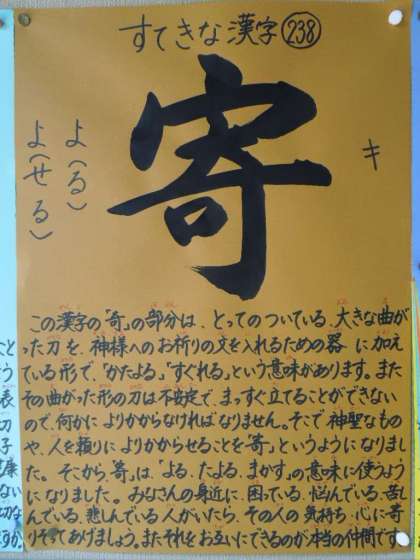 すてきな漢字 238
寄
キ
よ(る)
よ(せる)
この漢字の「奇」の部分は、とってのついている、大きな曲が
った刀を、神様へのお祈りの文を入れるための器に加え
ている形で、「かたよる」「すぐれる」という意味があります。また
その曲がった形の刀は不安定で、まっすぐ立てることができない
ので、何かによりかからなければなりません。そこで神聖なもの
や、人を頼りによりかからせることを「寄」というようになりまし
た。そこから、「寄」は、「よる、たよる、まかす」の意味に使うよう
になりました。みなさんの身近に、困っている、悩んでいる、苦し
んでいる、悲しんでいる人がいたら、その人の気持ち、心に寄
りそってあげましょう。またそれをお互いにできるのが本当の仲間です